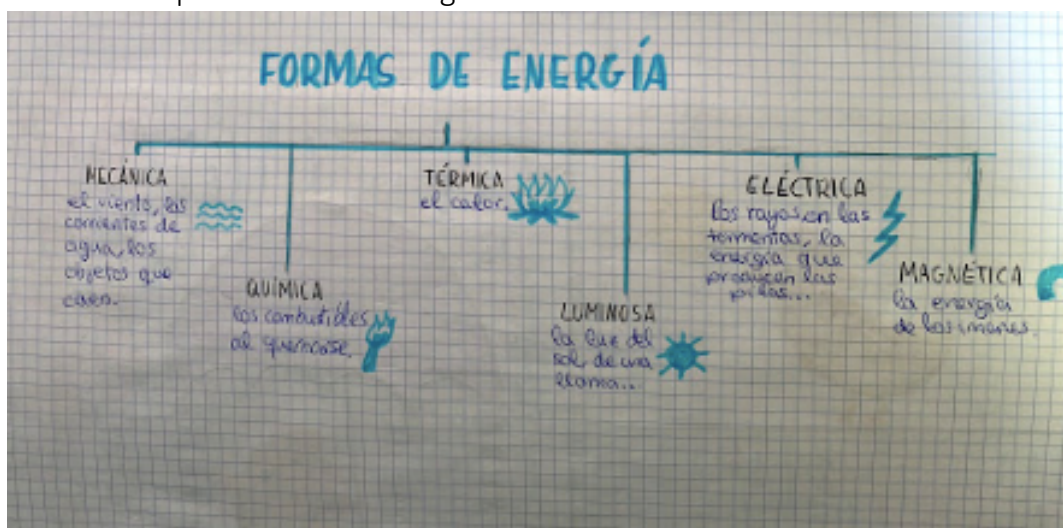 FORMAS DE ENERGÍA
MECÁNICA
el viento, las
corrientes de
agua, los
objetos que
caen.
QUÍMICA
los combustibles
al quemarse.
TÉRMICA
el calor.
LUMINOSA
la luz del
sol, de una
llama...
ELÉCTRICA
los rayos en las
tormentas, la
energía que
producen las
pilas...
MAGNÉTICA
la energía
de los imanes.